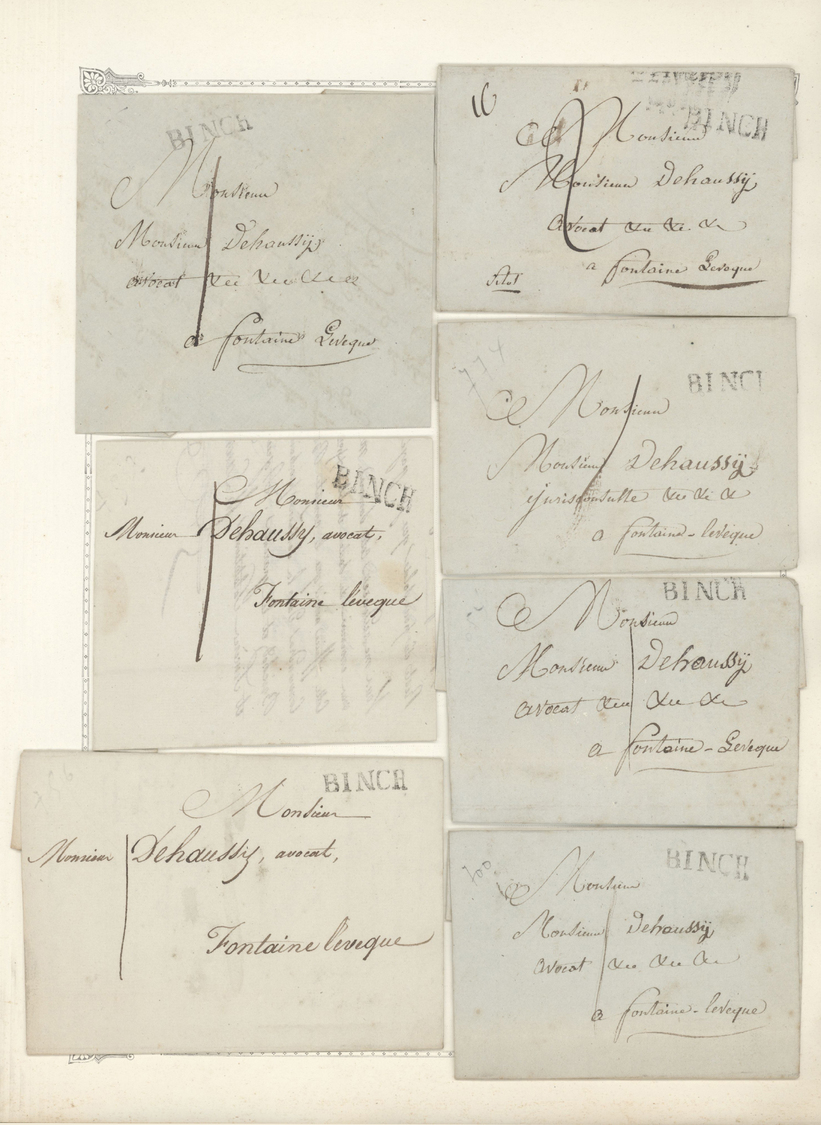 BINCH
Monsieur
Monsieur Dehaussÿ
avocat &c &c &c &c
a fontaine Leveque
BINCH
Monsieur
Monsieur Dehaussy, avocat,
Fontaine léveque
BINCH
Monsieur
Monsieur Dehaussy, avocat,
Fontaine léveque
16
BINCH
Monsieur
Monsieur Dehaussÿ
avocat &c &c &c
a fontaine Leveque
BINCH
Monsieur
Monsieur Dehaussÿ
jurisconsulte &c &c &c
a fontaine-leveque
BINCH
Monsieur
Monsieur Dehaussÿ
avocat &c &c &c
a fontaine-Leveque
100
BINCH
Monsieur
Monsieur Dehaussÿ
avocat &c &c &c
a fontaine-leveque